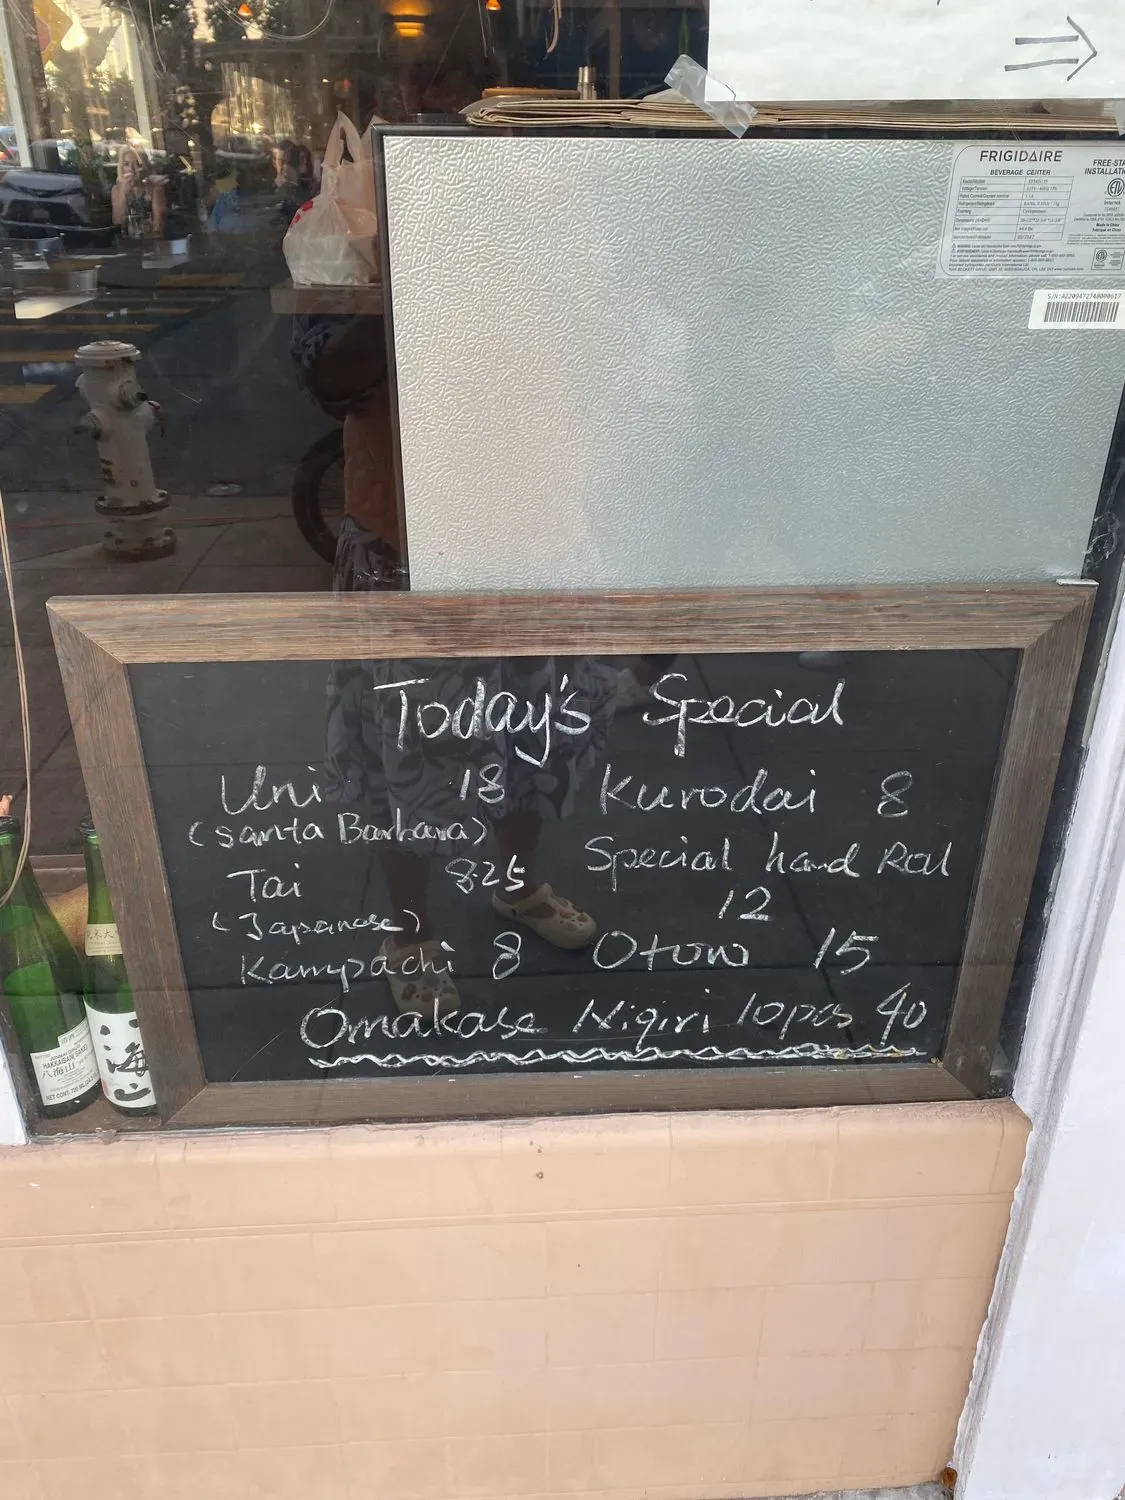 FRIGIDAIRE
BEVERAGE CENTER
FREE-STA
INSTALLATI
Intertek
S/N:A2209472740000617
Today's Special
Uni 18
(Santa Barbara)
Tai 825
(Japanese)
Kampachi 8
Kurodai 8
Special hand Roll
12
Otoro 15
Omakase Nigiri 10pcs 40
HAKKAISAN SAKE
八海山
NET CONT. 720 ML
八海山